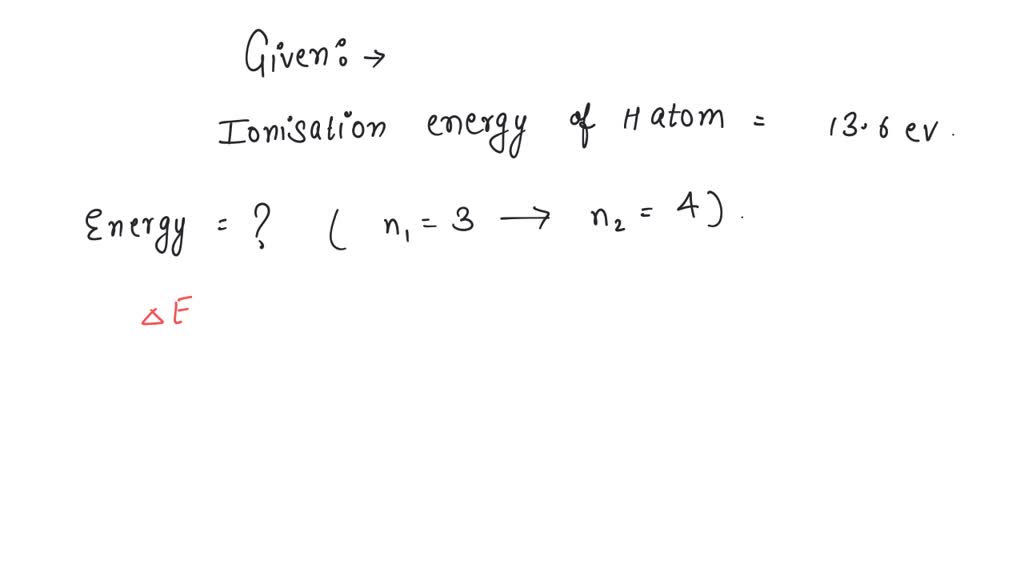 Given: →
Ionisation energy of H atom = 13.6 ev.
Energy = ? ( n₁ = 3 → n₂ = 4 ).
△E